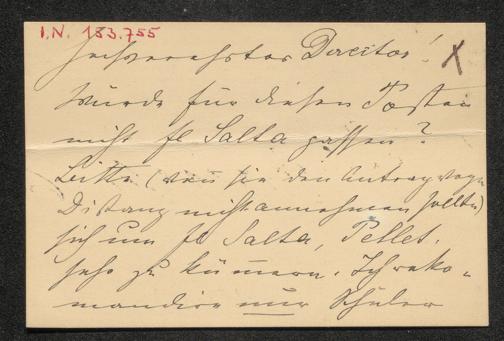 I.N. 183.755
Hochverehrter Director!
Würde für diesen Posten
nicht Frl Salta passen?
Bitte (wenn Sie den Antrag wegen
Distanz nicht annehmen sollten)
sich um Frl Salta,
sehr zu kümmern. Ich reko-
mandire nur Schüler